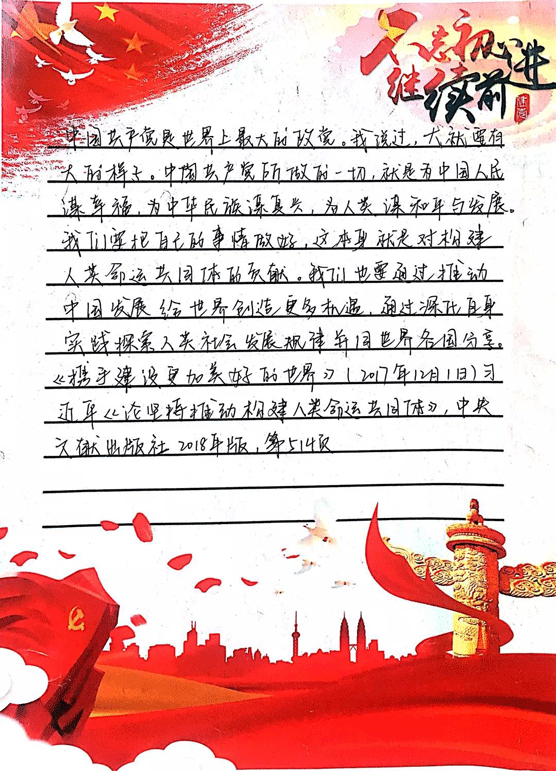 不忘初心
继续前进
中国共产党是世界上最大的政党。我说过，大就要有
大的样子。中国共产党所做的一切，就是为中国人民
谋幸福，为中华民族谋复兴，为人类谋和平与发展。
我们要把自己的事情做好，这本身就是对构建
人类命运共同体的贡献。我们也要通过推动
中国发展给世界创造更多机遇，通过深化自身
实践探索人类社会发展规律并同世界各国分享。
《携手建设更加美好的世界》（2017年12月1日）习
近平《论坚持推动构建人类命运共同体》，中央
文献出版社2018年版，第514页